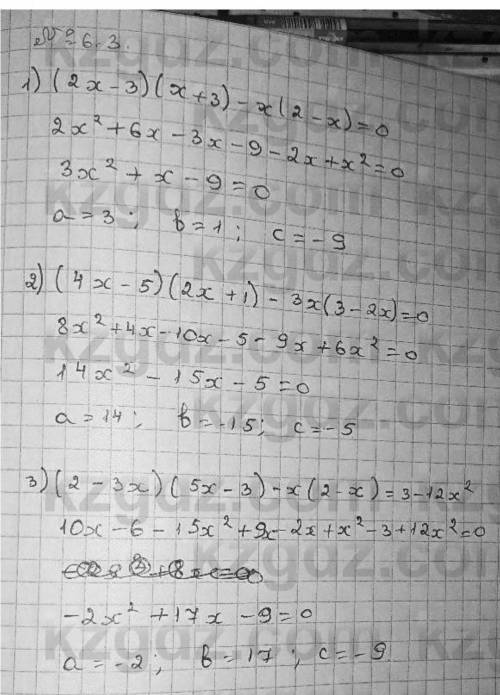 № 6.3.
1) (2x-3)(x+3)-x(2-x)=0
2x²+6x-3x-9-2x+x²=0
3x²+x-9=0
a=3; b=1; c=-9
2) (4x-5)(2x+1)-3x(3-2x)=0
8x²+4x-10x-5-9x+6x²=0
14x²-15x-5=0
a=14; b=-15; c=-5
3) (2-3x)(5x-3)-x(2-x)=3-12x²
10x-6-15x²+9x-2x+x²-3+12x²=0
-2x²+17x-9=0
a=-2; b=17; c=-9